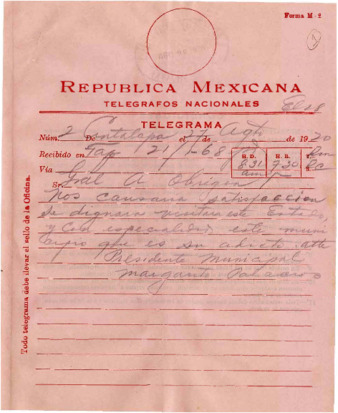 Forma M-2
1
REPUBLICA MEXICANA
TELEGRAFOS NACIONALES
TELEGRAMA
Núm. 2 De Cintalapa el 27 Agto de 1920
Recibido en Tap 121 1-68
H. D. H. R.
Vía 8.31 9.30
am
Sr. Gral A Obregon
Nos causaria satisfaccion
se dignara visitar este Estado,
y con especialidad este muni
cipio que es su adicto. Atte
Presidente Municipal
Margarito
Todo telegrama debe llevar el sello de la Oficina.